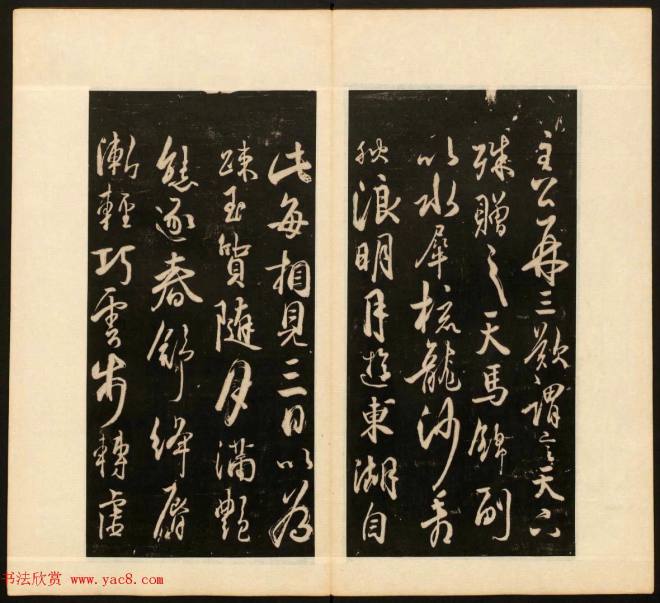 主公再三歎謂言天下
殊贈之天馬錦副
以水犀梳龍沙看
秋浪明月遊東湖自
此每相見三日以為
踈玉質隨月滿艷
態逐春舒絳脣
漸輕巧雲步轉虛
书法欣赏 www.yac8.com